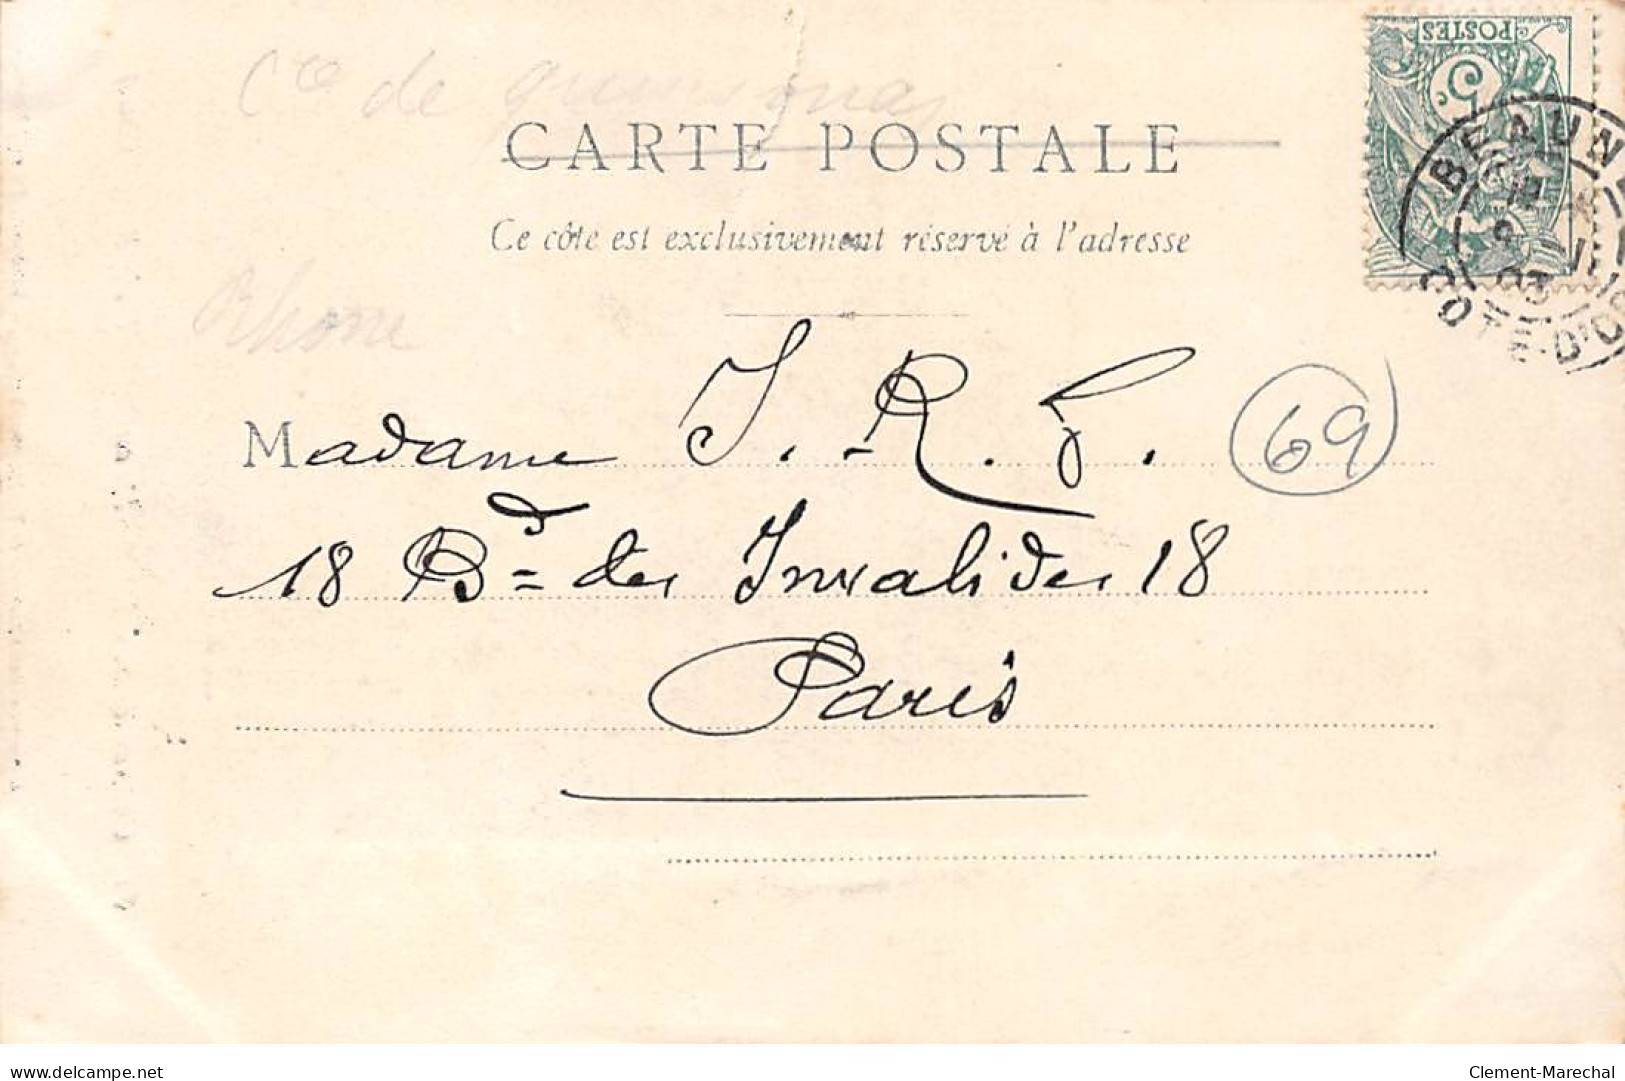 POSTES
5
BEAUNE
COTE-D'OR
03
Cte de
CARTE POSTALE
Ce côte est exclusivement réservé à l'adresse
Rhone
Madame J. R. F.
69
18 Bd des Invalides 18
Paris
delcampe.net
Clement-Marechal